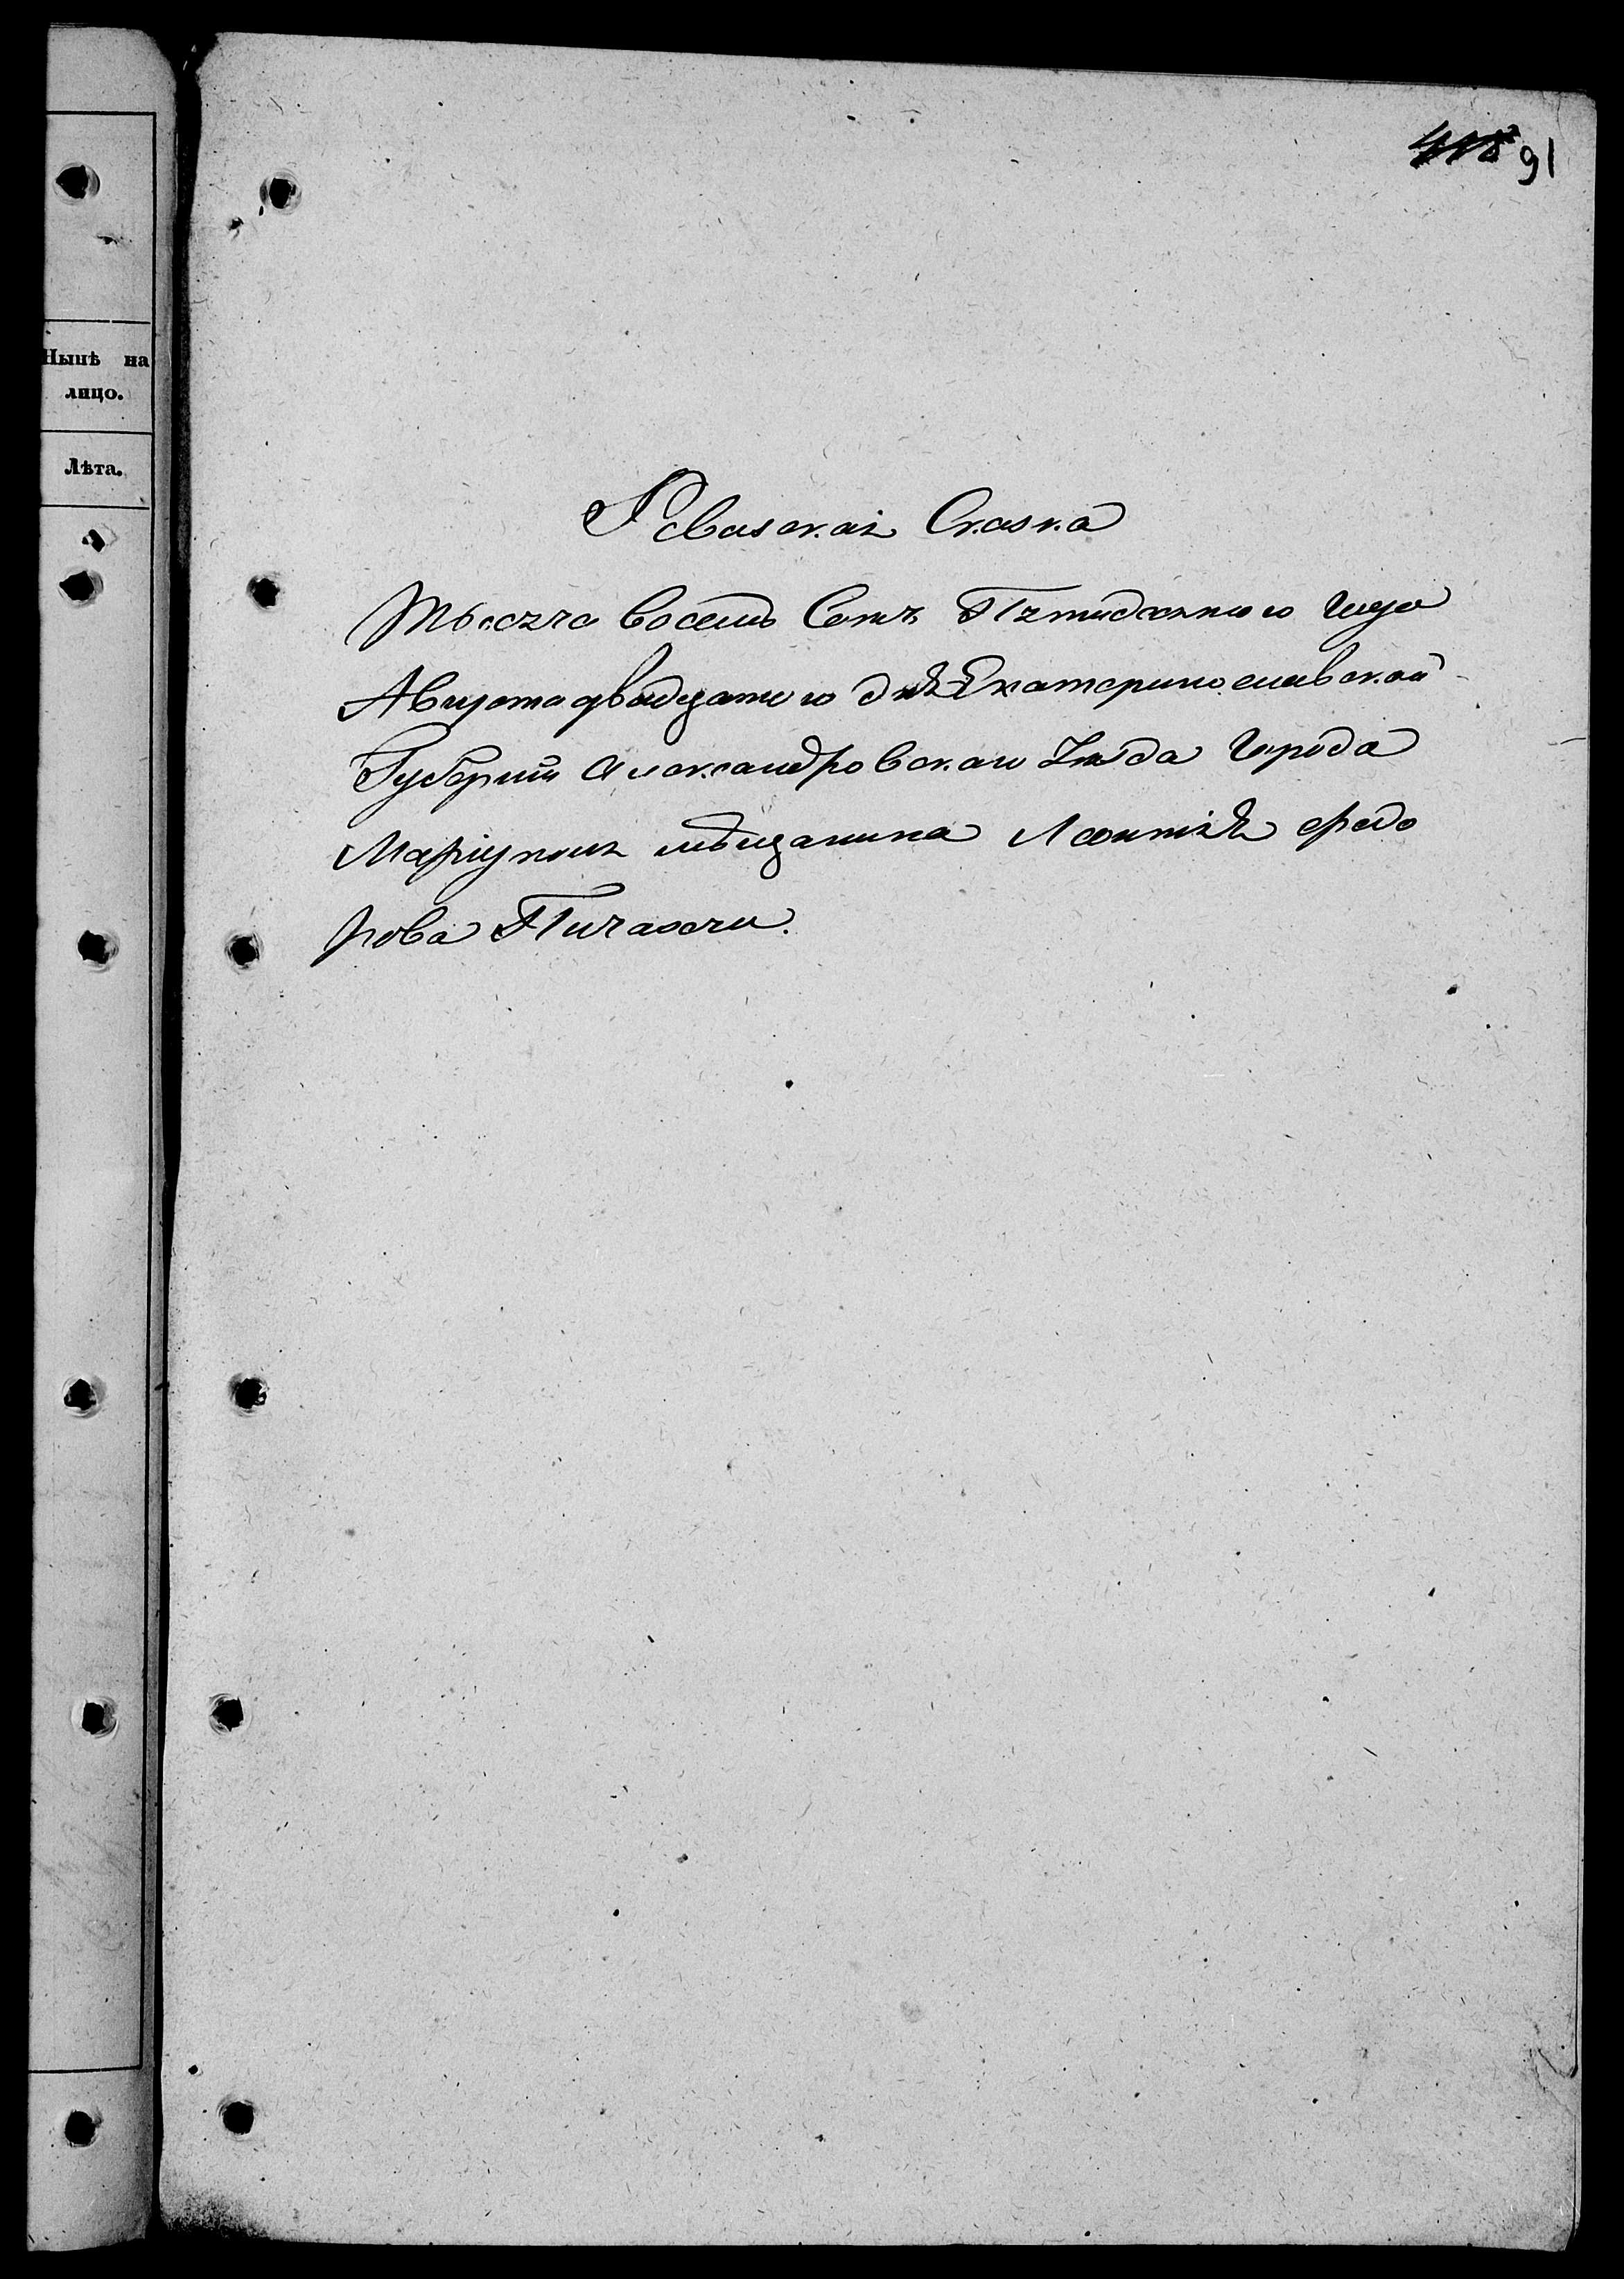 91
Нынѣ на
лицо.
Лѣта.
Ревизская Сказка
Тысяча восемь Сотъ Пятидесятаго Года
Августа двадцатаго дня Екатеринославской
Губерніи Александровскаго Уѣзда Города
Маріуполя мѣщанина Леонтія Федо
рова Пичахчи.